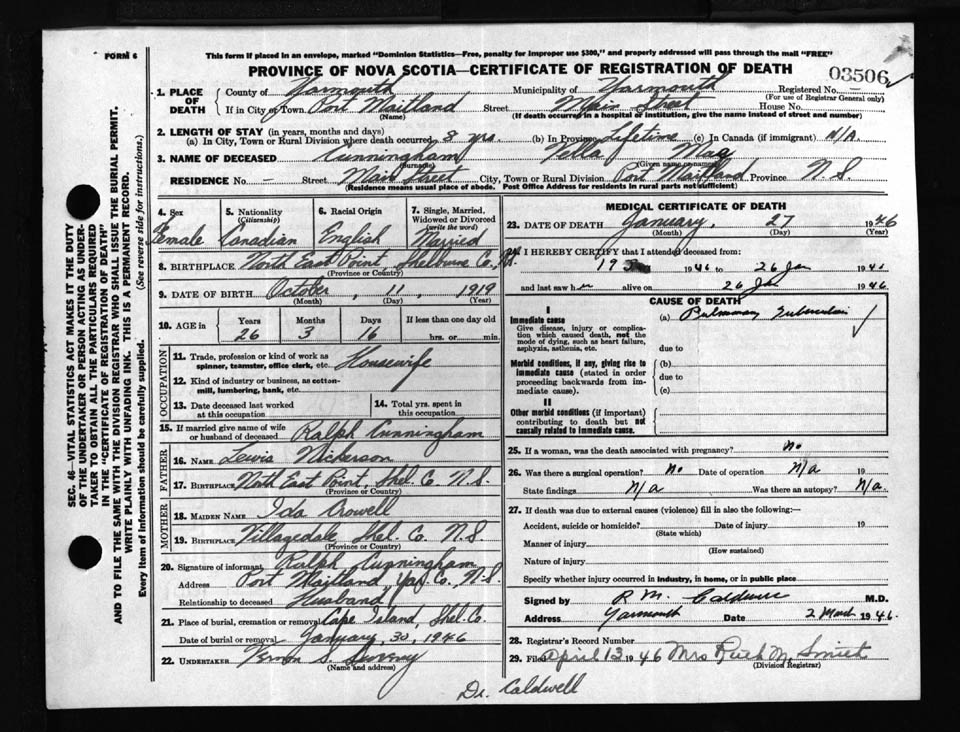 FORM 6
This form if placed in an envelope, marked "Dominion Statistics—Free, penalty for improper use $300," and properly addressed will pass through the mail "FREE"
PROVINCE OF NOVA SCOTIA—CERTIFICATE OF REGISTRATION OF DEATH
03506
SEC. 46—VITAL STATISTICS ACT MAKES IT THE DUTY
OF THE UNDERTAKER OR PERSON ACTING AS UNDER-
TAKER TO OBTAIN ALL THE PARTICULARS REQUIRED
IN THE "CERTIFICATE OF REGISTRATION OF DEATH"
AND TO FILE THE SAME WITH THE DIVISION REGISTRAR WHO SHALL ISSUE THE BURIAL PERMIT.
WRITE PLAINLY WITH UNFADING INK. THIS IS A PERMANENT RECORD.
Every item of information should be carefully supplied. (See reverse side for instructions.)
1. PLACE OF DEATH
County of Yarmouth Municipality of Yarmouth Registered No. —
(For use of Registrar General only)
If in City or Town Port Maitland Street Main Street House No.
(Name) (If death occurred in a hospital or institution, give the name instead of street and number)
2. LENGTH OF STAY (in years, months and days)
(a) In City, Town or Rural Division where death occurred 8 yrs. (b) In Province Lifetime (c) In Canada (if immigrant) N/A
3. NAME OF DECEASED Cunningham Mae
(Surname) (Given name or names)
RESIDENCE No. — Street Main Street City, Town or Rural Division Port Maitland Province N S
(Residence means usual place of abode. Post Office Address for residents in rural parts not sufficient)
4. Sex
Female
5. Nationality
(Citizenship)
Canadian
6. Racial Origin
English
7. Single, Married,
Widowed or Divorced
(write the word)
Married
8. BIRTHPLACE North East Point, Shelburne Co., N.S.
(Province or Country)
9. DATE OF BIRTH October, 11, 1919
(Month) (Day) (Year)
10. AGE in
Years Months Days If less than one day old
26 3 16 hrs. or min.
OCCUPATION
11. Trade, profession or kind of work as
spinner, teamster, office clerk, etc. Housewife
12. Kind of industry or business, as cotton-
mill, lumbering, bank, etc.
13. Date deceased last worked
at this occupation
14. Total yrs. spent in
this occupation
15. If married give name of wife
or husband of deceased Ralph Cunningham
FATHER
16. NAME Lewis Nickerson
17. BIRTHPLACE North East Point, Shel. Co. N.S.
(Province or Country)
MOTHER
18. MAIDEN NAME Ida Crowell
19. BIRTHPLACE Villagedale Shel. Co. N.S.
(Province or Country)
20. Signature of informant Ralph Cunningham
Address Port Maitland Yar. Co., N.S.
Relationship to deceased Husband
21. Place of burial, cremation or removal Cape Island, Shel. Co.
Date of burial or removal January, 30, 1946
22. UNDERTAKER Vernon S.
(Name and address)
Dr. Caldwell
MEDICAL CERTIFICATE OF DEATH
23. DATE OF DEATH January, 27 1946
(Month) (Day) (Year)
24. I HEREBY CERTIFY that I attended deceased from:
19 1946 to 26 Jan 1946
and last saw her alive on 26 Jan 1946
CAUSE OF DEATH
I
Immediate cause
Give disease, injury or complica-
tion which caused death, not the
mode of dying, such as heart failure,
asphyxia, asthenia, etc.
(a) Pulmonary Tuberculosis
due to
Morbid conditions, if any, giving rise to
immediate cause (stated in order
proceeding backwards from im-
mediate cause).
(b)
due to
(c)
II
Other morbid conditions (if important)
contributing to death but not
causally related to immediate cause.
25. If a woman, was the death associated with pregnancy? No
26. Was there a surgical operation? No Date of operation N/A 19
State findings N/a Was there an autopsy? N/a.
27. If death was due to external causes (violence) fill in also the following:—
Accident, suicide or homicide? Date of injury 19
(State which)
Manner of injury
(How sustained)
Nature of injury
Specify whether injury occurred in industry, in home, or in public place
Signed by R M. Caldwell M.D.
Address Yarmouth Date 2 March 1946.
28. Registrar's Record Number
29. Filed April 13 1946 Mrs Ruth M. Smith
(Division Registrar)